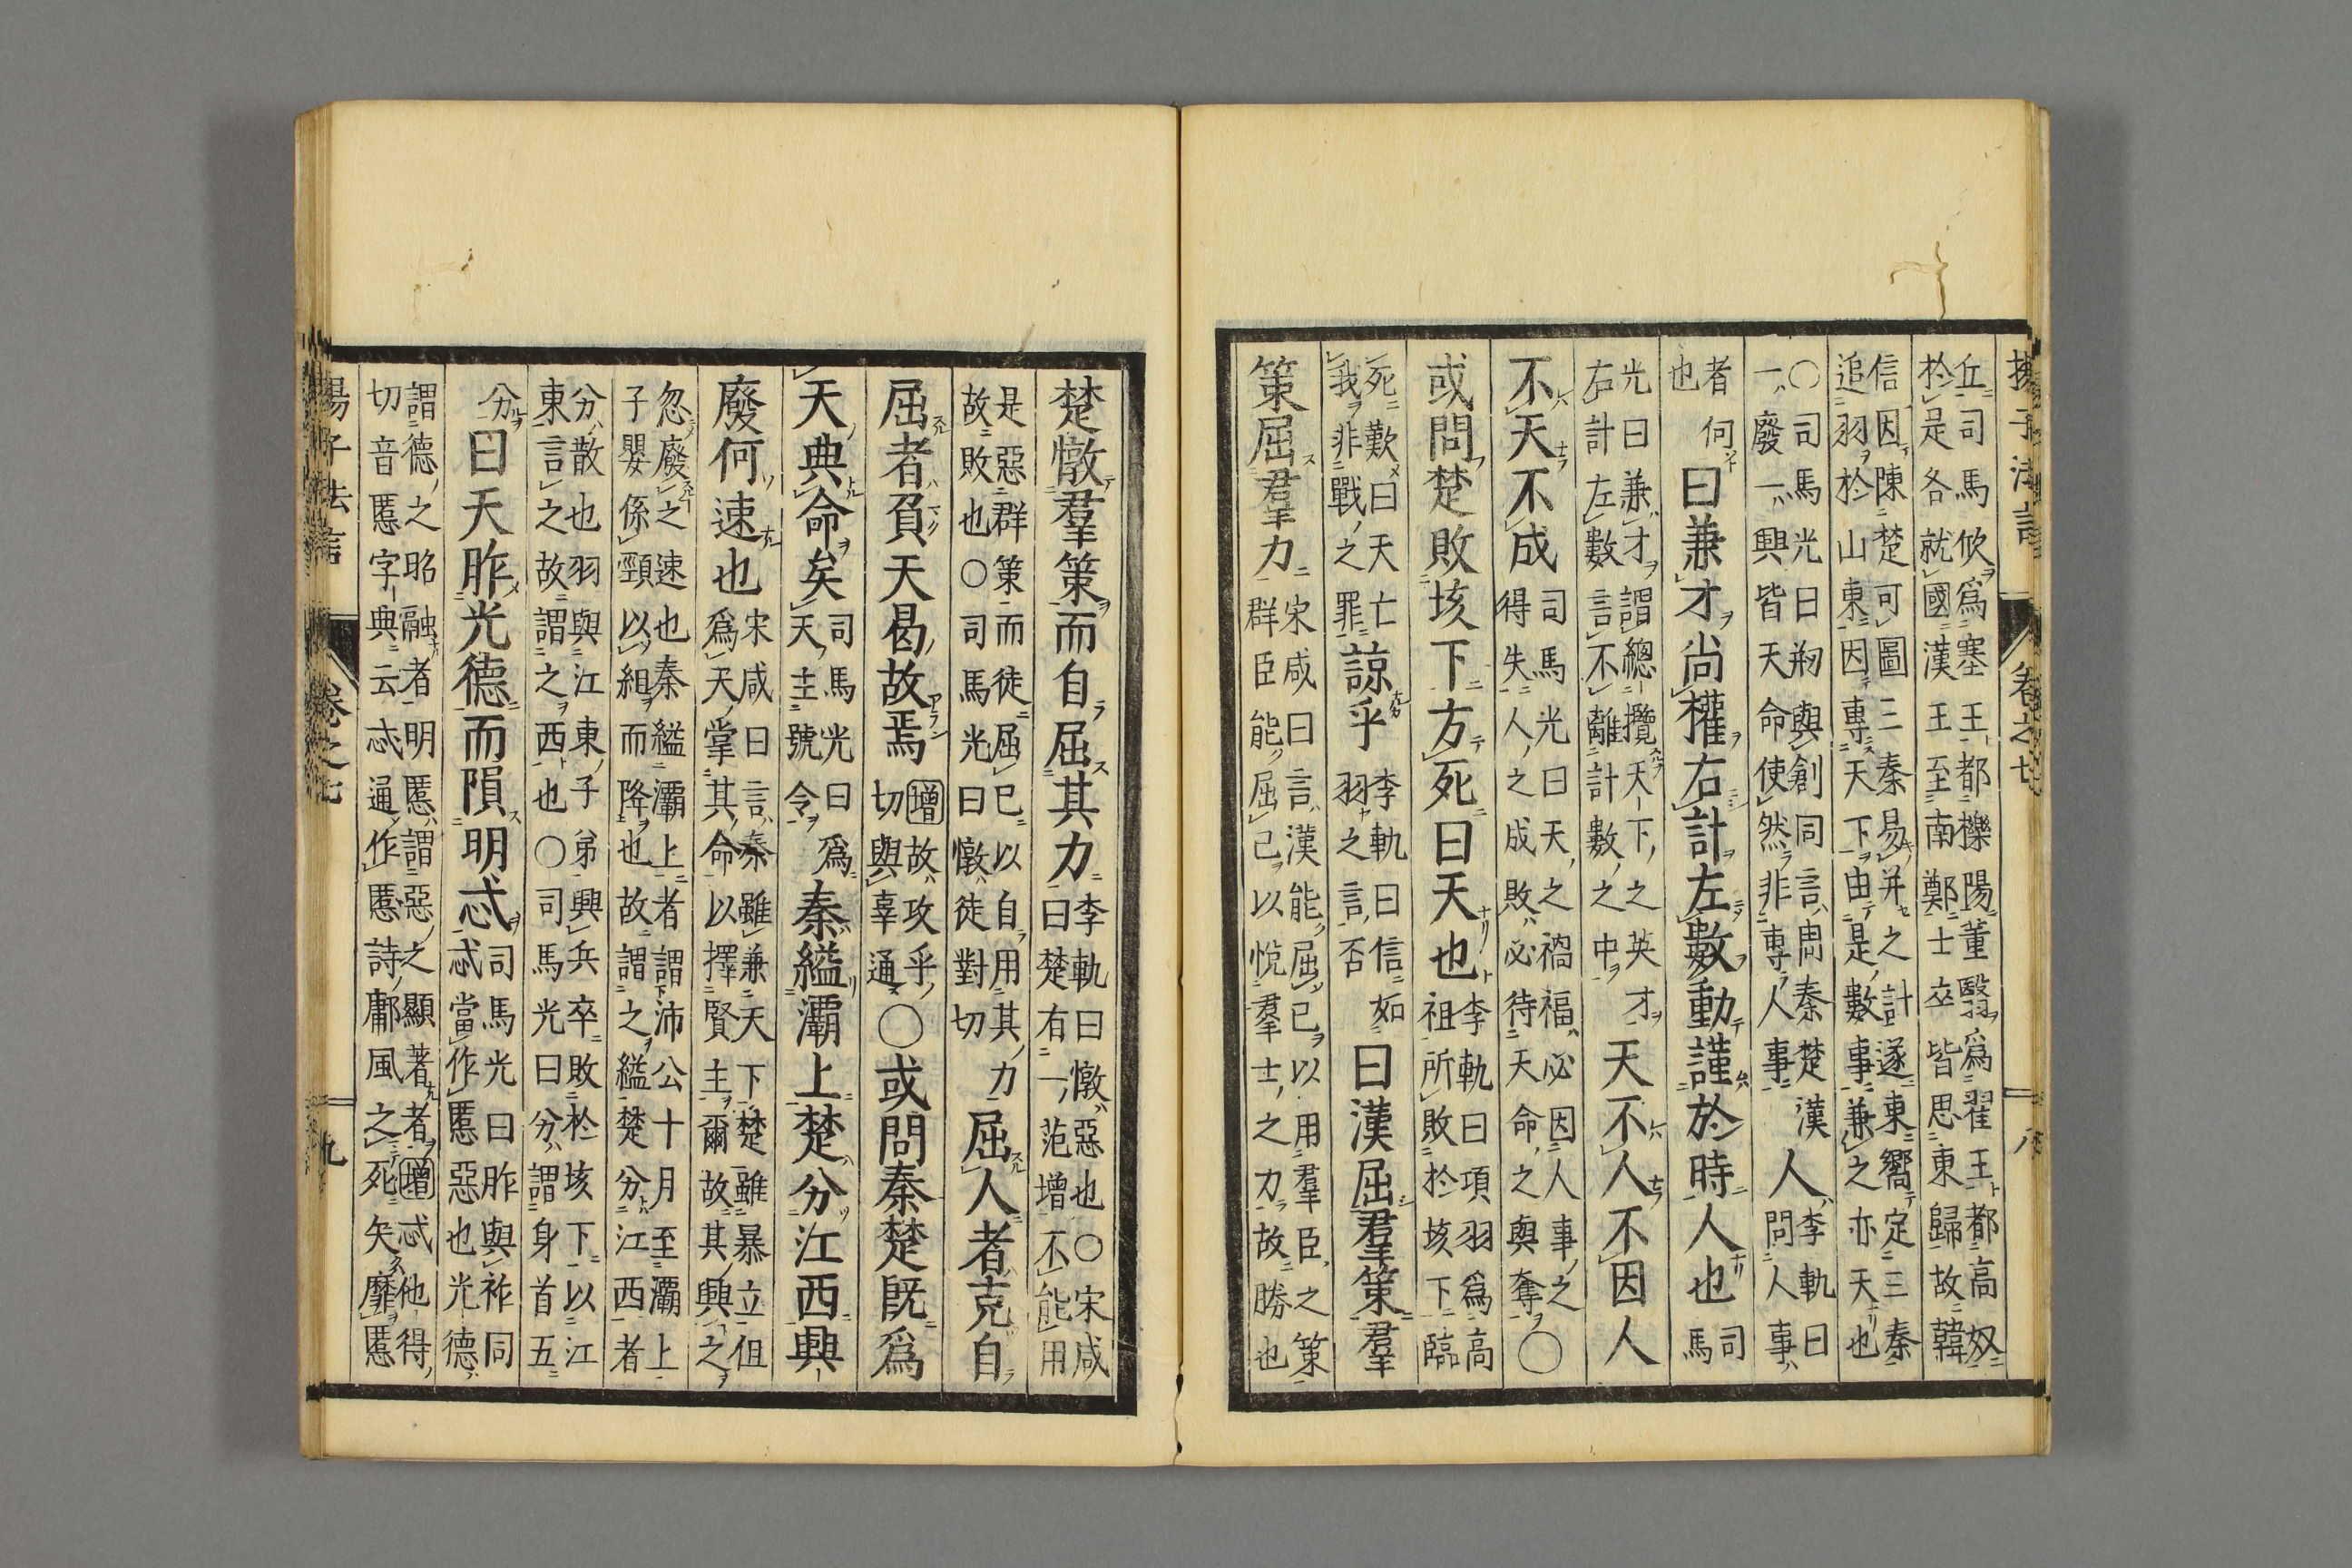 揚子法言　卷之七　八
丘司馬欣爲塞王都櫟陽董翳爲翟王都高奴
於是各就國漢王至南鄭士卒皆思東歸故韓
信因陳楚可圖三秦易并之計遂東嚮定三秦
追羽於山東因專天下由是數事兼之亦天也
○司馬光曰剏與創同言由秦楚漢
一廢一興皆天命使然非專人事
人
李軌曰
問人事
者何
也
曰兼才尚權右計左數動謹於時人也
司
馬
光曰兼才謂總攬天下之英才
右計左數言不離計數之中
天不人不因人
不天不成
司馬光曰天之禍福必因人事之
得失人之成敗必待天命之與奪
○
或問楚敗垓下方死曰天也
李軌曰項羽爲高
祖所敗於垓下臨
死歎曰天亡
我非戰之罪
諒乎
李軌曰信如
羽之言否
曰漢屈羣策羣
策屈羣力
宋咸曰言漢能屈己以用羣臣之策
群臣能屈己以悅羣士之力故勝也
楚憞羣策而自屈其力
李軌曰憞惡也○宋咸
曰楚有一范增不能用
是惡群策而徒屈已以自用其力
故敗也○司馬光曰憞徒對切
屈人者克自
屈者負天曷故焉
增故攻乎
切與辜通
○或問秦楚既爲
天典命矣
司馬光曰爲
天主號令
秦縊灞上楚分江西興
廢何速也
宋咸曰言秦雖兼天下楚雖暴立但
爲天掌其命以擇賢主爾故其興之
忽廢之速也秦縊灞上者謂沛公十月至灞上
子嬰係頸以組而降也故謂之縊楚分江西者
分散也羽與江東子弟興兵卒敗於垓下以江
東言之故謂之西也○司馬光曰分謂身首五
分
曰天胙光德而隕明忒
司馬光曰胙與祚同
忒當作慝惡也光德
謂德之昭融者明慝謂惡之顯著者增忒他得
切音慝字典云忒通作慝詩鄘風之死矢靡慝
揚子法言　卷之七　九